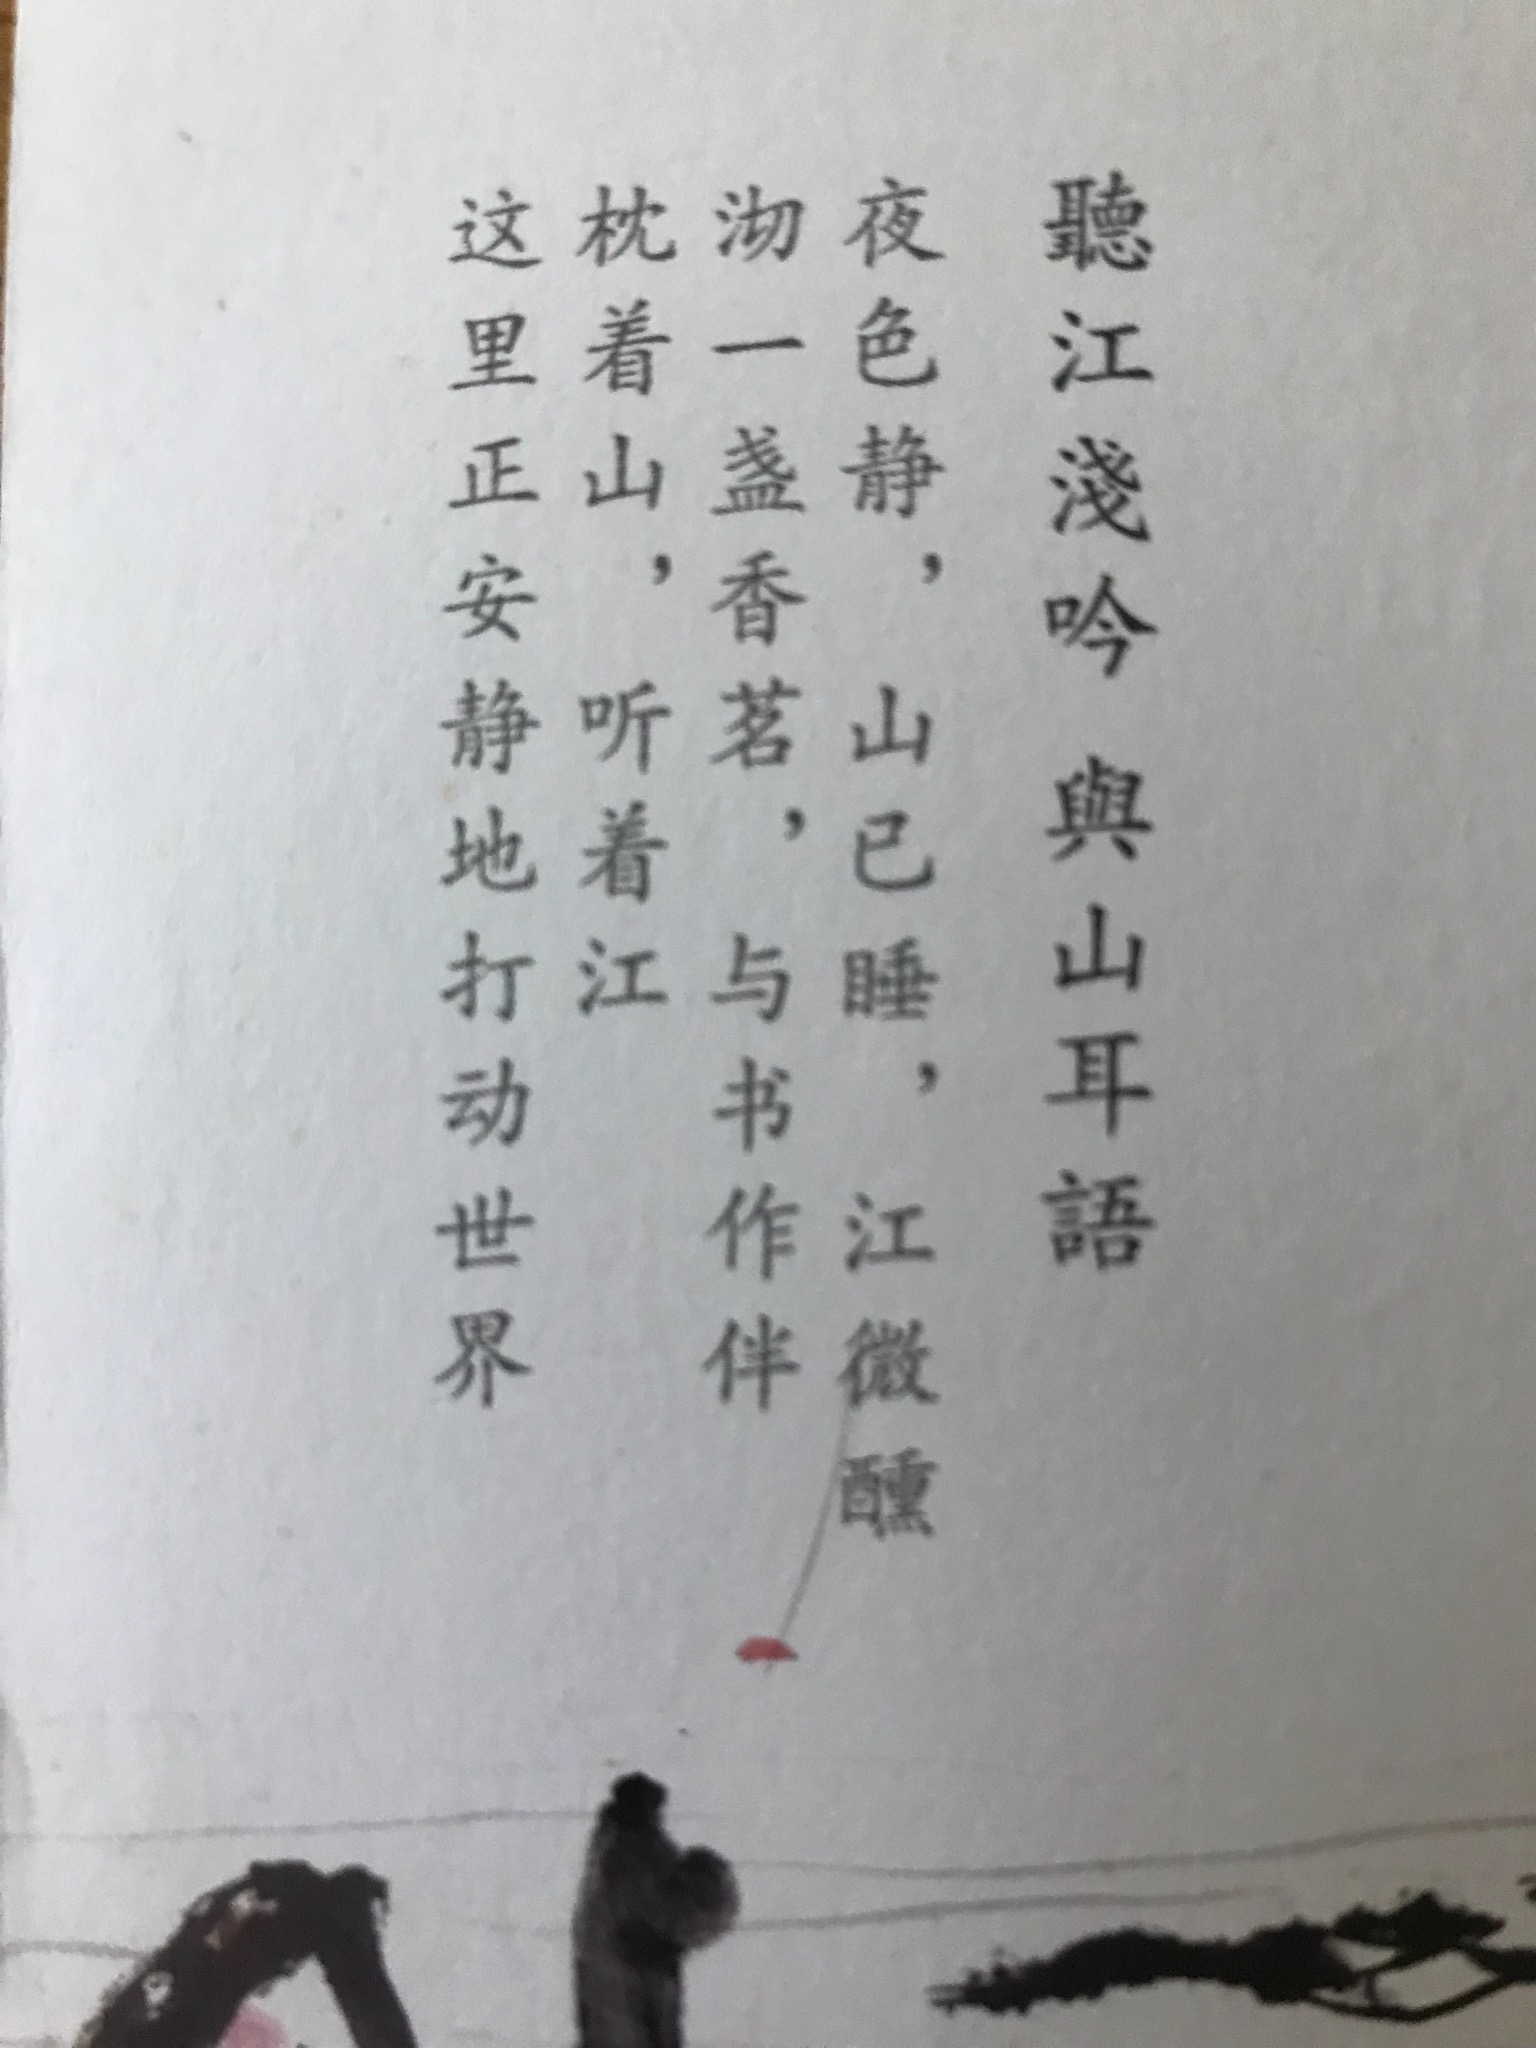 聽江淺吟 與山耳語
夜色静，山已睡，江微醺
沏一盏香茗，与书作伴
枕着山，听着江
这里正安静地打动世界